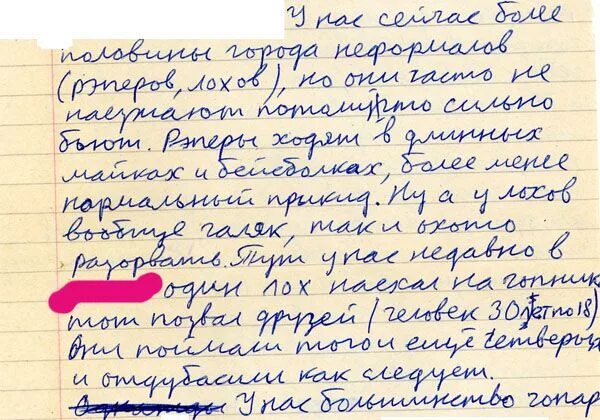 У нас сейчас более
половины города неформалов
(рэперов, лохов), но они часто не
наезжают потому что сильно
бьют. Рэперы ходят в длинных
майках и бейсболках, более менее
нормальный прикид. Ну а у лохов
вообще галяк, так и охото
разорвать. Тут у нас недавно в
один лох наехал на гопника
тот позвал друзей (человек 30 лет по 18)
Они поймали того и ещё четверых
и отдубасили как следует.
У нас большинство гопар